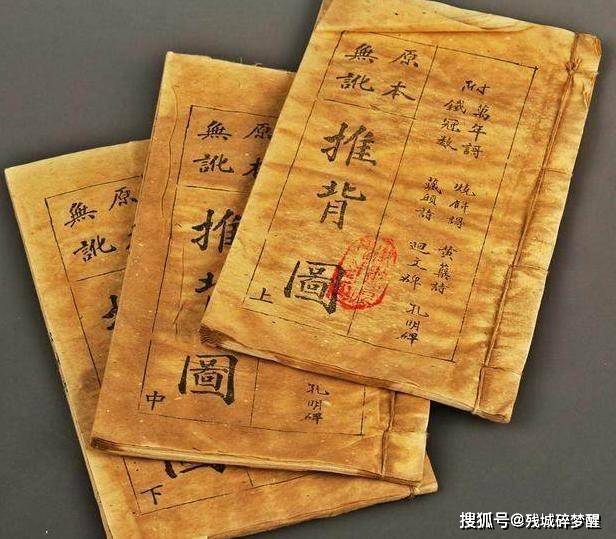 原本
無訛
推背圖
上
附
萬年謌
鐵冠數
燒餅謌
藏頭詩
黃蘗詩
迴文碑
孔明碑
原本
無訛
推
圖
中
孔明碑
原
無訛
下
搜狐号@残城碎梦醒